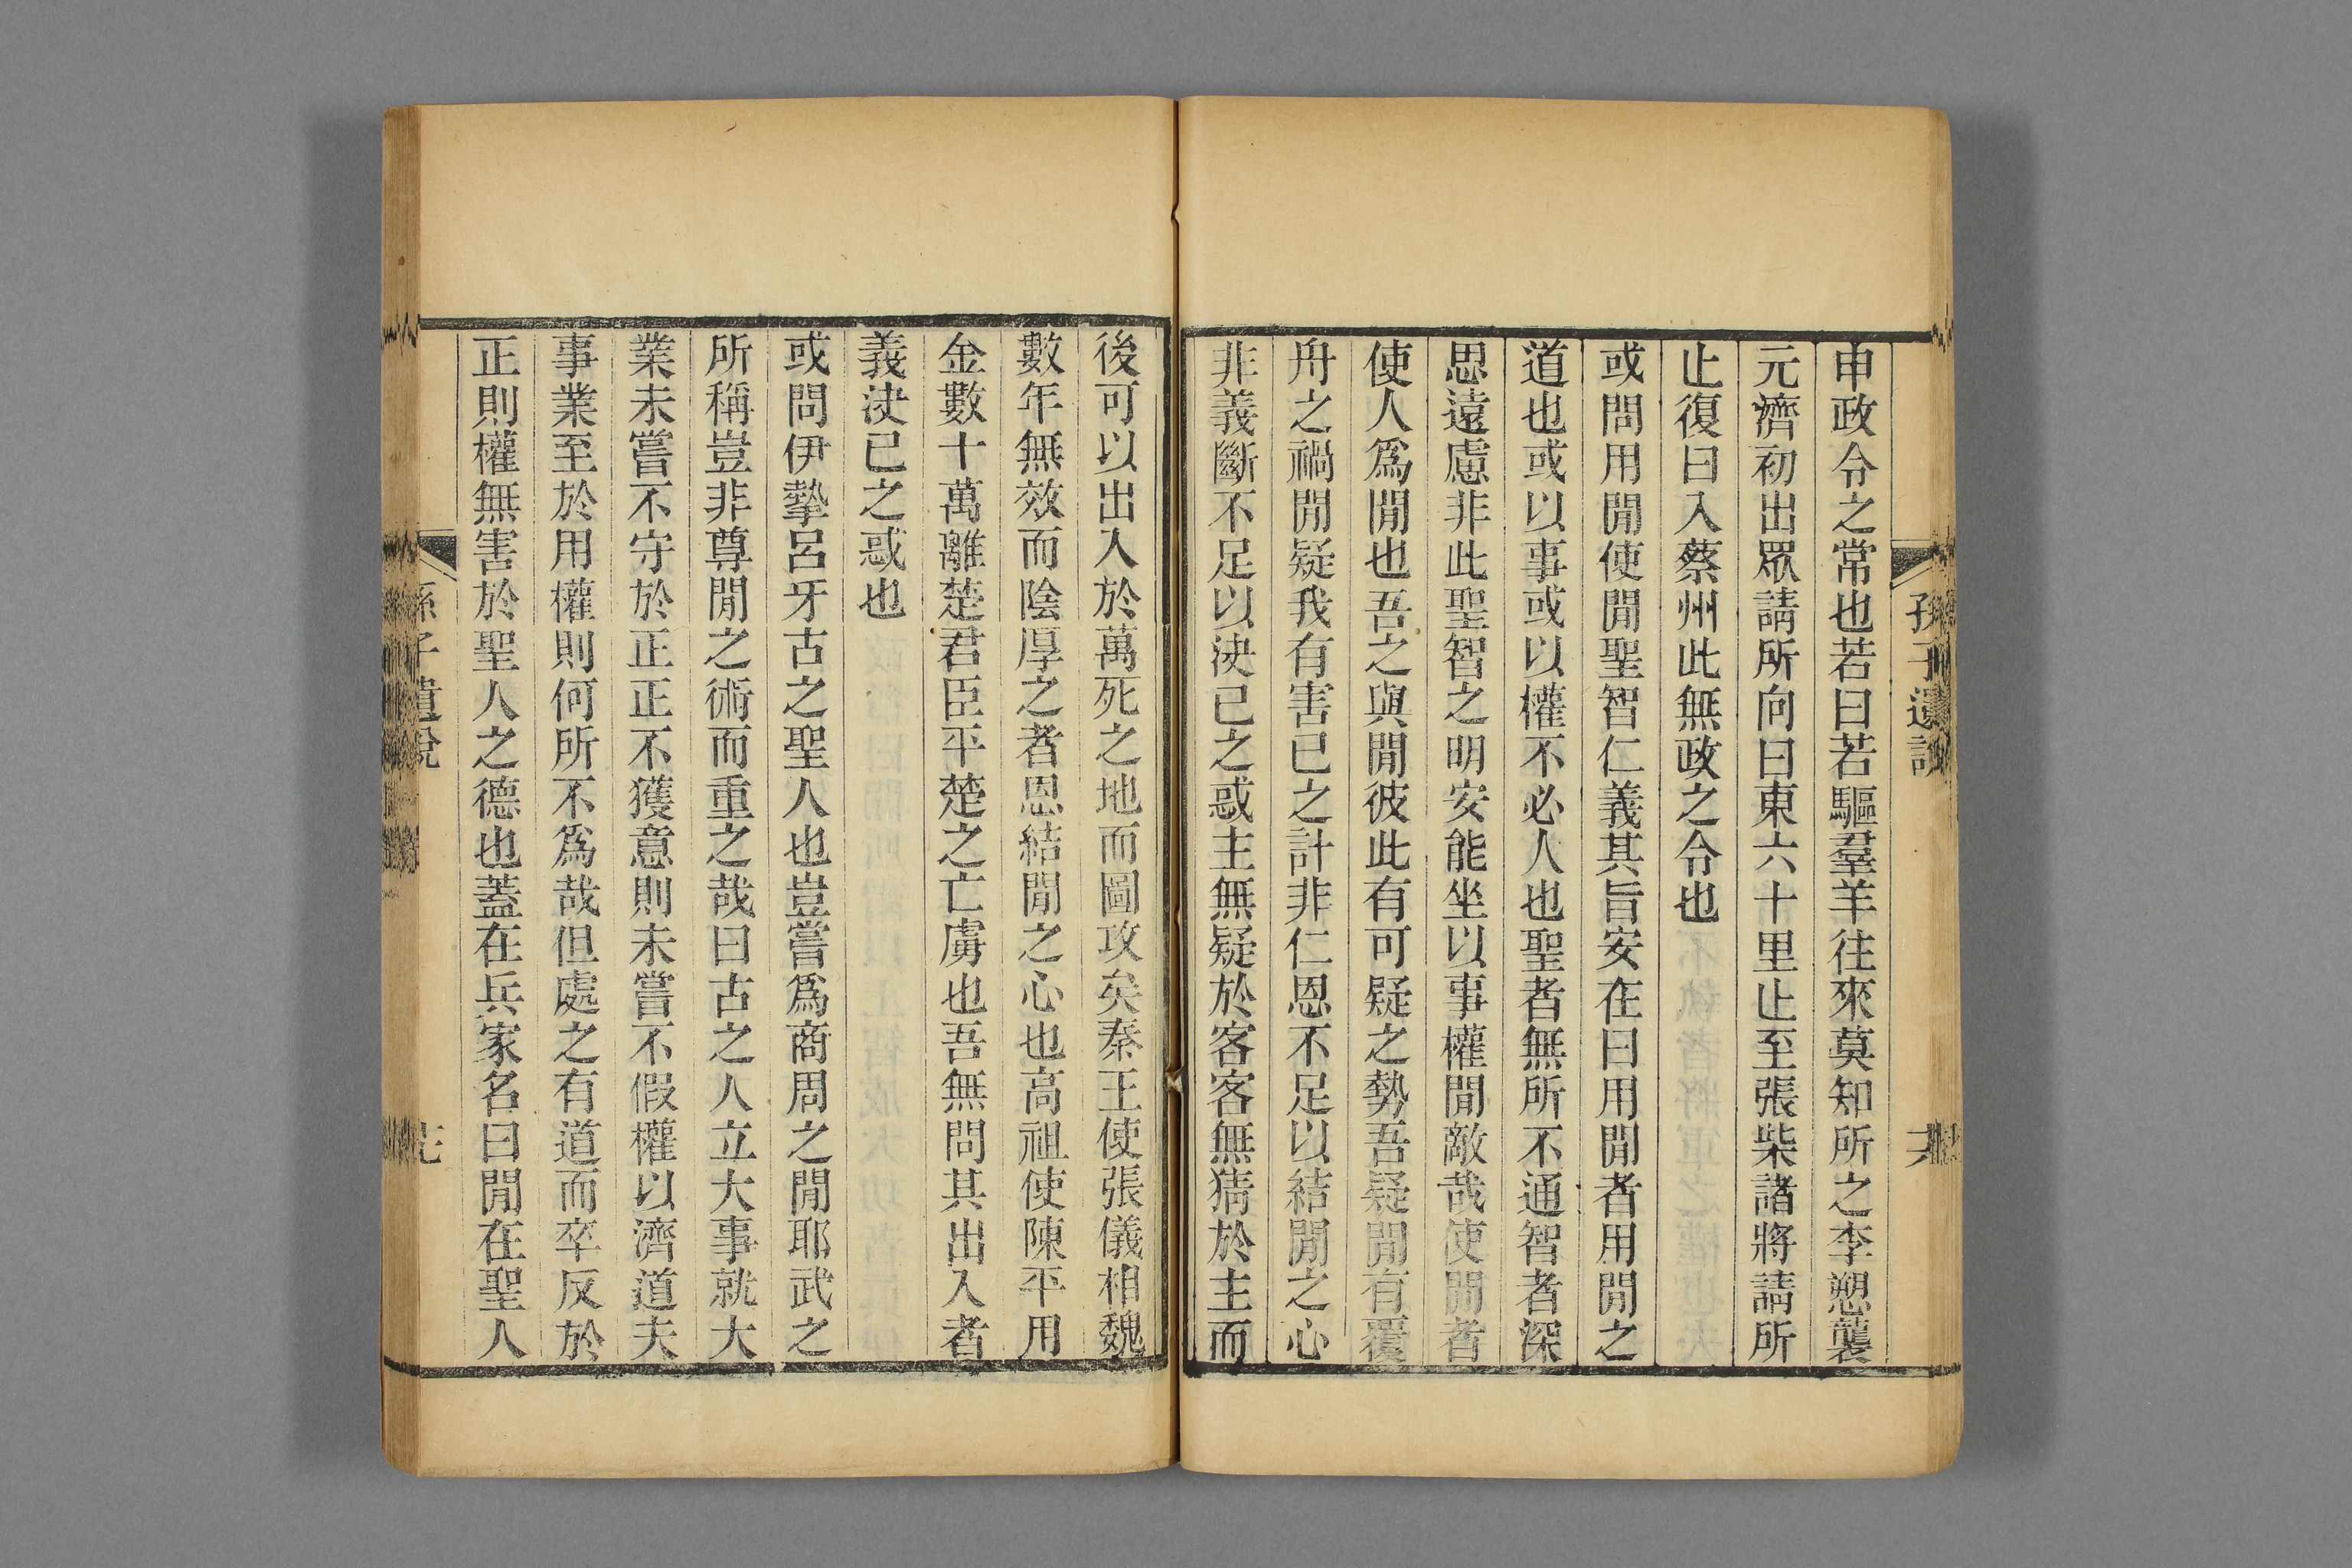 申政令之常也若曰若驅羣羊往來莫知所之李愬襲
元濟初出眾請所向曰東六十里止至張柴諸將請所
止復曰入蔡州此無政之令也
或問用閒使閒聖智仁義其旨安在曰用閒者用閒之
道也或以事或以權不必人也聖者無所不通智者深
思遠慮非此聖智之明安能坐以事權閒敵哉使閒者
使人爲閒也吾之與閒彼此有可疑之勢吾疑閒有覆
舟之禍閒疑我有害已之計非仁恩不足以結閒之心
非義斷不足以決已之惑主無疑於客客無猜於主而
後可以出入於萬死之地而圖攻矣秦王使張儀相魏
數年無效而陰厚之者恩結閒之心也高祖使陳平用
金數十萬離楚君臣平楚之亡虜也吾無問其出入者
義決已之惑也
或問伊摯呂牙古之聖人也豈嘗爲商周之閒耶武之
所稱豈非尊閒之術而重之哉曰古之人立大事就大
業未嘗不守於正正不獲意則未嘗不假權以濟道夫
事業至於用權則何所不爲哉但處之有道而卒反於
正則權無害於聖人之德也蓋在兵家名曰閒在聖人
孫子遺說